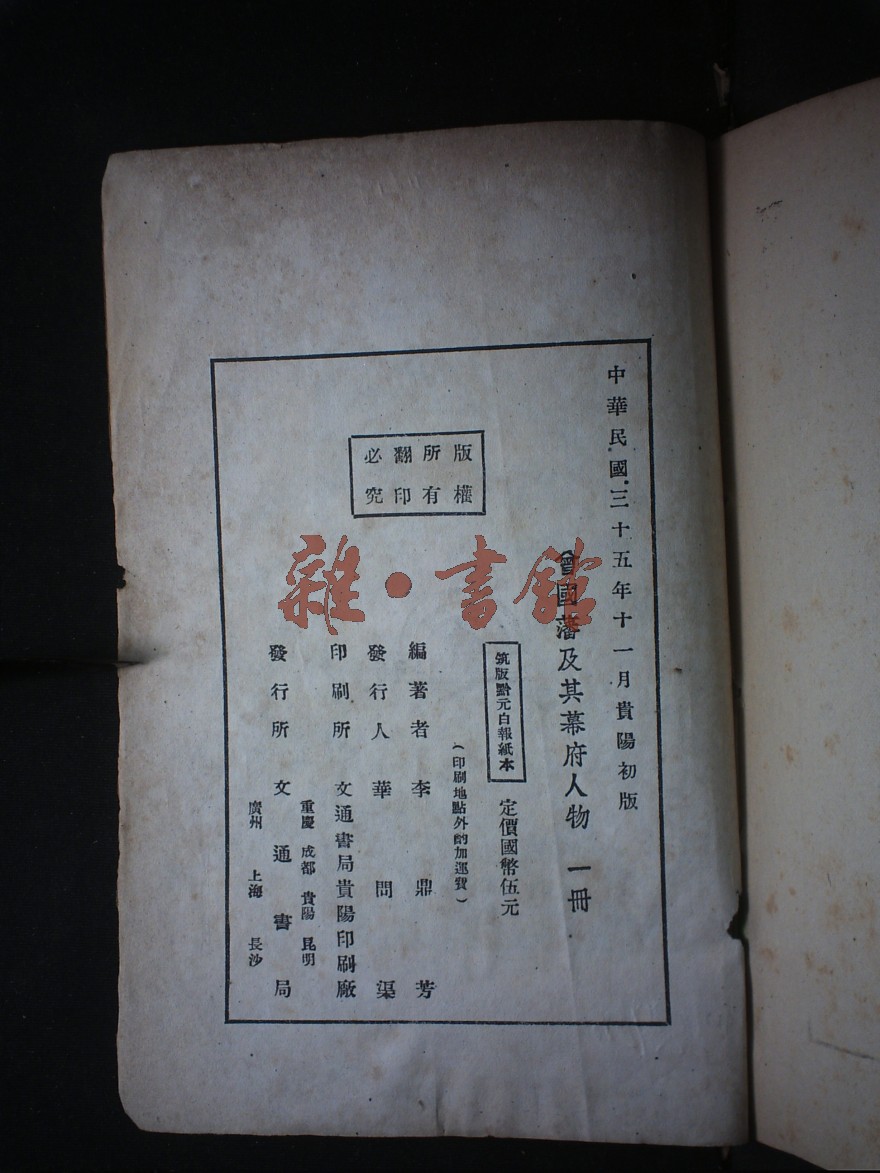 中華民國三十五年十一月貴陽初版
曾國藩及其幕府人物 一冊
筑版黔元白報紙本
定價國幣伍元
（印刷地點外酌加運費）
編著者 李鼎芳
發行人 華問渠
印刷所 文通書局貴陽印刷廠
發行所 文通書局
重慶 成都 貴陽 昆明
廣州 上海 長沙
版權所有
翻印必究
雜·書館